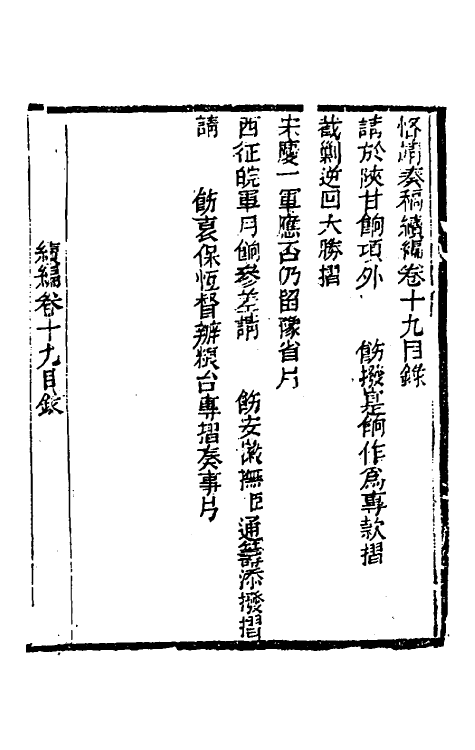 恪靖奏稿續編卷十九目錄
請於陝甘餉項外　飭撥是餉作為專款摺
截剿逆回大勝摺
宋慶一軍應否仍留豫省片
西征皖軍月餉參差請　飭安徽撫臣通籌添撥摺
請　飭袁保恆督辦糧台專摺奏事片
續編卷十九目錄